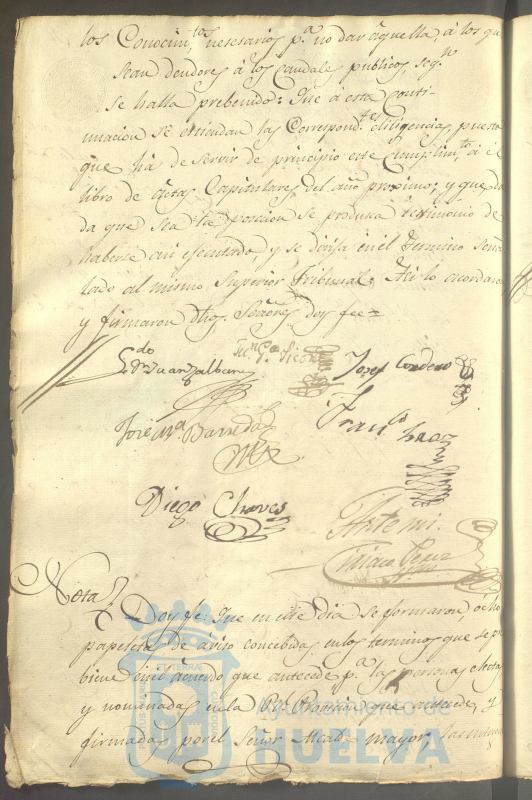 los Conocim.tos nesesarios p.a no dar aquella á los que
sean deudores á los caudales publicos, seg.n
se halla prebenido: Que á esta conti-
nuacion se extiendan las correspond.tes diligencias, puesto
que há de servir de principio este Cumplim.to á el
libro de Actas Capitulares del año proximo; y que da
da que sea la posecion se produsca testimonio de
haberse asi ejecutado, y se dirija en el termino seña
lado al mismo Superior tribunal: Asi lo acordaron
y firmaron dhos. Señores doy fee=
Josef Cordero
Jose M.a Barreda
Fran.co
Diego Chaves
Ante mi.
Perez
Nota
Doy fe: Que en este dia se formaron, ocho
papeletas de aviso concebidas en los terminos que se pre
biene en el acuerdo que antecede p.a las personas electas
y nominadas en la R.l Provicion que antecede, y
firmadas por el Señor Alcalde mayor,
Ayuntamiento de
HUELVA